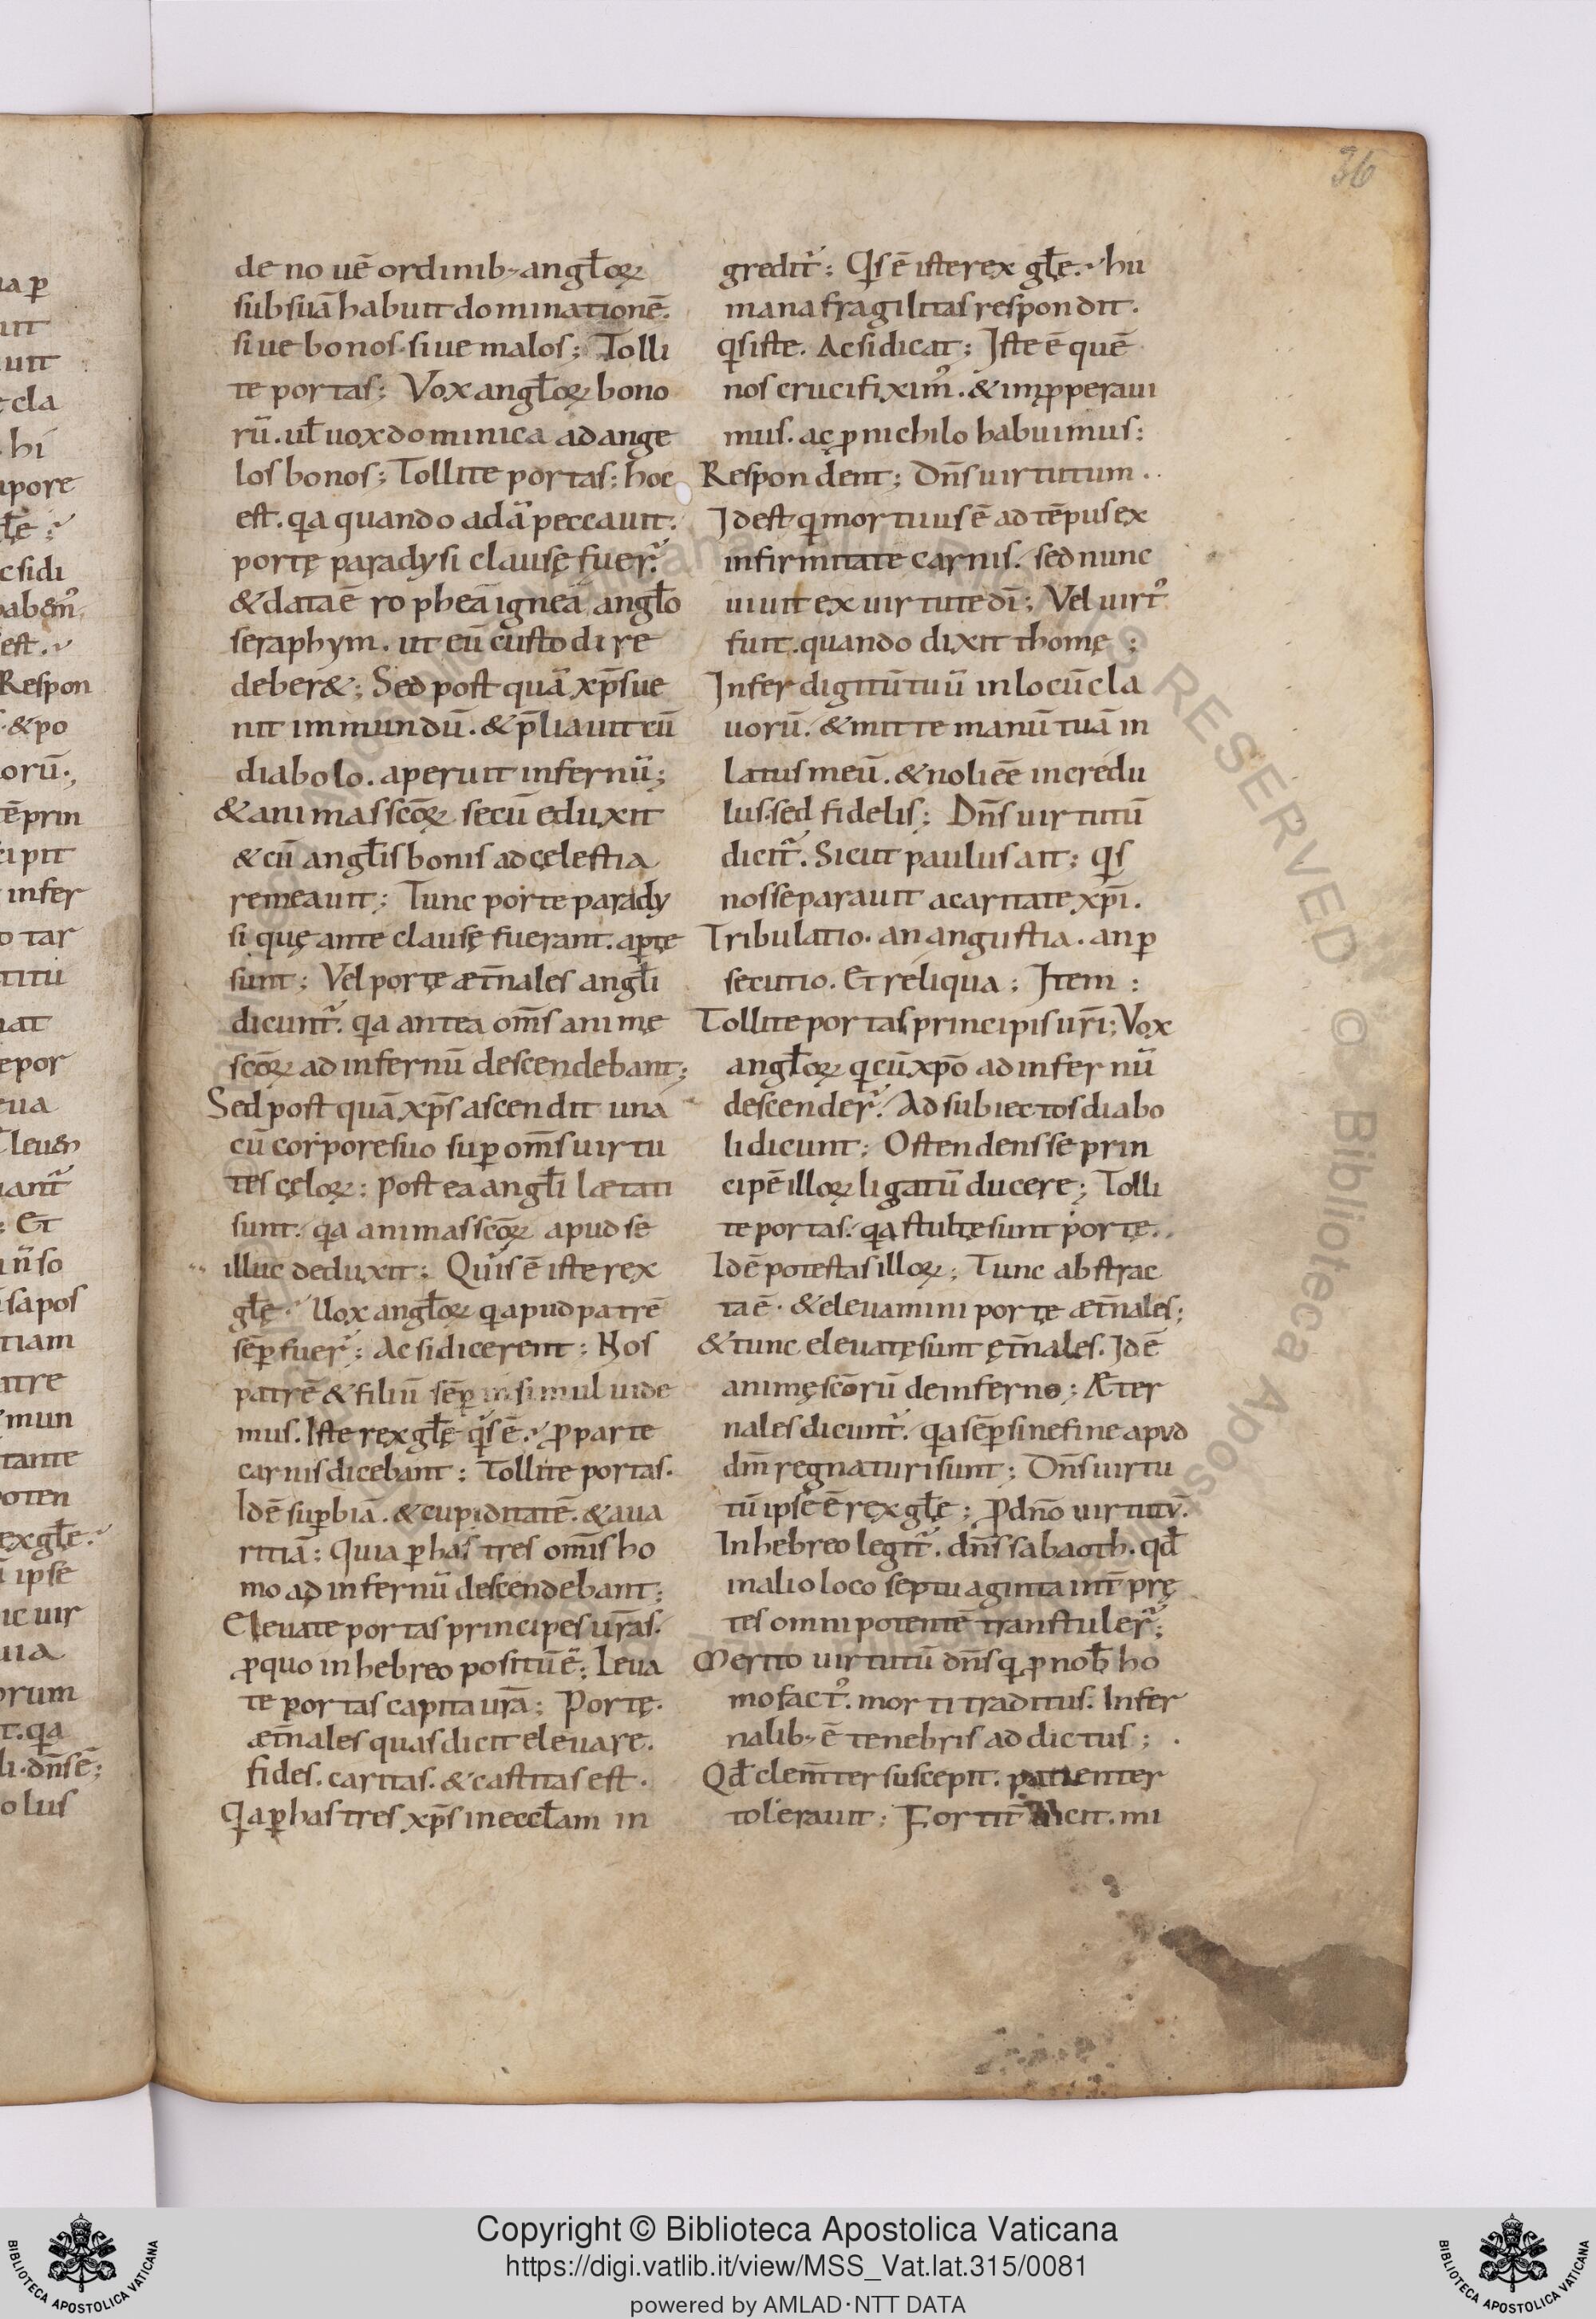 36
de no uē ordinib; angl̄oꝝ
sub suā habuit dominationē.
siue bonos. siue malos; Tolli
te portas; Vox angl̄oꝝ bono
rū. ul̄ uox dominica ad ange
los bonos; Tollite portas; hoc
est. qa quando adā peccauit.
portę paradysi clausę fuer̄.
& data ē rophea ignea angl̄o
seraphym. ut eū custodire
deber&; Sed post quā xp̄s ue
nit in mundū. & p̄liauit cū
diabolo. aperuit infernū;
& animas sc̄oꝝ secū eduxit
& cū angl̄is bonis ad cęlestia
remeauit; Tunc porte parady
si quę ante clausę fuerant. aꝑtę
sunt; Vel portę æt̄nales angl̄i
dicunt̄. qa antea om̄s animę
sc̄oꝝ ad infernū descendebant;
Sed post quā xp̄s ascendit una
cū corpore suo suꝑ om̄s uirtu
tes cęloꝝ; post ea angl̄i lætati
sunt. qa animas sc̄oꝝ apud se
illuc deduxit; Quis ē iste rex
gl̄ę. Uox angl̄oꝝ q apud patrē
sēꝑ fuer̄; Ac si dicerent; Nos
patrē & filiū sēꝑ insimul uide
mus. Iste rex gl̄ę qis ē. ꝓ parte
carnis dicebant; Tollite portas.
Id ē suꝑbiā. & cupiditatē. & aua
ritiā; Quia ꝑ has tres om̄is ho
mo ad infernū descendebant;
Eleuate portas principes ur̄as.
ꝓ quo in hebreo positū ē; Leua
te portas capita ur̄a; Portę.
æt̄nales quas dicit eleuare.
fides. caritas. & castitas est.
Qa ꝑ has tres xp̄s in eccl̄am in
gredit̄; Qis ē iste rex gl̄ę. hu
mana fragilitas respondit.
qis iste. Ac si dicat; Iste ē quē
nos crucifixim᾿. & imꝓperaui
mus. ac ꝓ nichilo habuimus;
Respondent; Dn̄s uirtutum.
Id est qi mortuus ē ad tēpus ex
infirmitate carnis. sed nunc
uiuit ex uirtute dī; Vel uirt᾿
fuit. quando dixit thomę;
Infer digitū tuū in locū cla
uorū. & mitte manū tuā in
latus meū. & noli eē incredu
lus. sed fidelis; Dn̄s uirtutū
dicit̄. Sicut paulus ait; Qis
nos separauit a caritate xp̄i.
Tribulatio. an angustia. an ꝑ
secutio. Et reliqua; Item;
Tollite portas principis ur̄i; Vox
angl̄oꝝ q cū xp̄o ad infernū
descender̄. Ad subiectos diabo
li dicunt; Ostendens se prin
cipē illoꝝ ligatū ducere; Tolli
te portas. qa stultę sunt portę.
Id ē potestas illoꝝ; Tunc abstrac
ta ē. & eleuamini portę æt̄nales;
& tunc eleuatę sunt ęt̄nales. Id ē
animę sc̄orū de inferno; Æter
nales dicunt̄. qa sēꝑ sine fine apud
dm̄ regnaturi sunt; Dn̄s uirtu
tū ipse ē rex gl̄ę; P dn̄o uirtutū.
In hebreo legit̄. dn̄s sabaoth. qđ
in alio loco septuaginta int̄prę
tes omnipotentē transtuler̄;
Merito uirtutū dn̄s qi ꝓ nob̄ ho
mo fact᾿. morti traditus. Infer
nalib; ē tenebris addictus;
Qđ clem̄ter suscepit. patienter
tolerauit; Fortit̄ uicit. mi
Copyright © Biblioteca Apostolica Vaticana
https://digi.vatlib.it/view/MSS_Vat.lat.315/0081
powered by AMLAD·NTT DATA